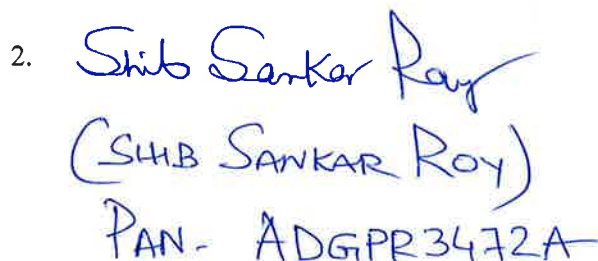 2. Shib Sankar Roy
(SHIB SANKAR ROY)
PAN- ADGPR3472A